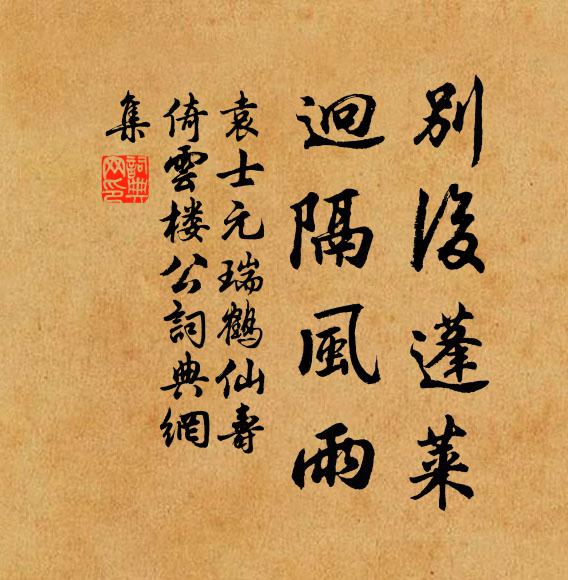 別後蓬萊
迥隔風雨
袁士元瑞鶴仙壽
倚雲楼公詞典網
集
詞典
网印